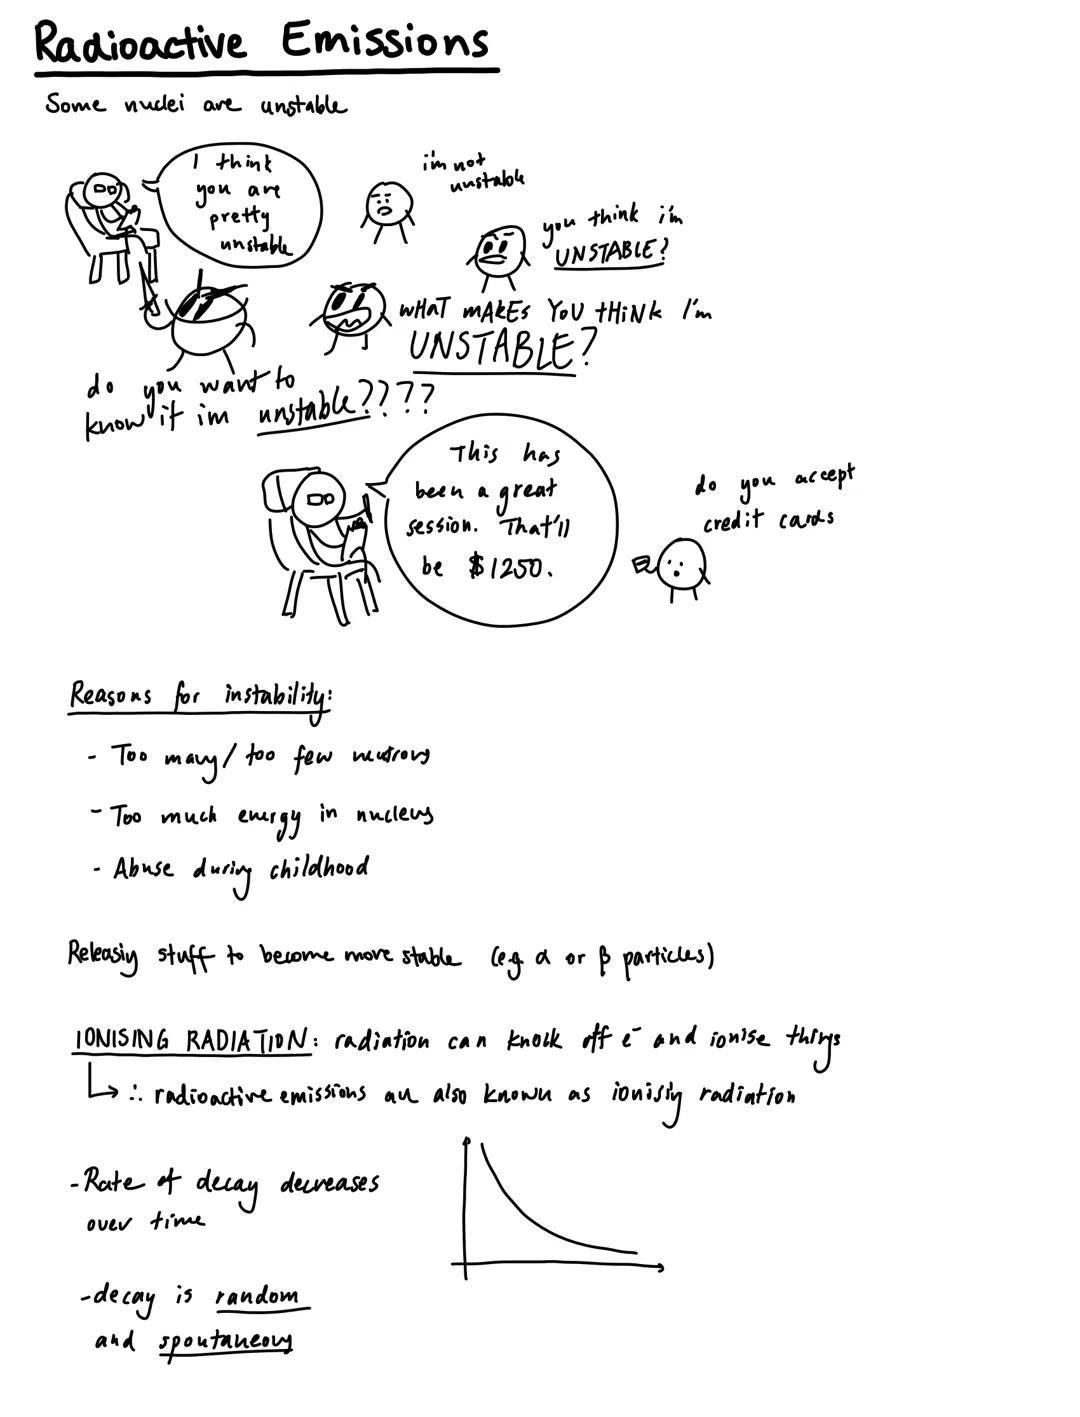 Radioactive Emissions
Some nuclei are unstable
I think
you are
pretty
unstable
i'm not
unstable
you think i'm
UNSTABLE?
WHAT MAKES YOU THINK I'm
UNSTABLE?
do you want to
know if im unstable????
This has
been a great
session. That'll
be $1250.
do you accept
credit cards
Reasons for instability:
- Too many/too few neutrons
- Too much energy in nucleus
- Abuse during childhood
Releasing stuff to become more stable (e.g. α or β particles)
IONISING RADIATION: radiation can knock off e⁻ and ionise things
↳ ∴ radioactive emissions are also known as ionising radiation
- Rate of decay decreases
over time
- decay is random
and spontaneous